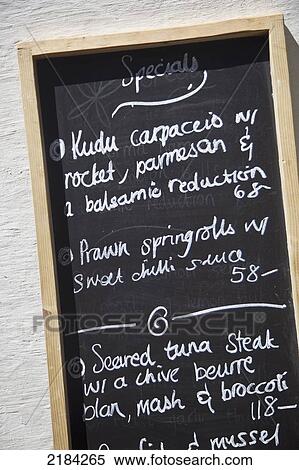 Specials
Kudu carpaccio w/
rocket, parmesan &
a balsamic reduction
68-
Prawn springrolls w/
sweet chilli sauce
58-
Seared tuna steak
w/ a chive beurre
blan, mash & broccoti
118-
& mussel
FOTOSEARCH
2184265 www.fotosearch.com